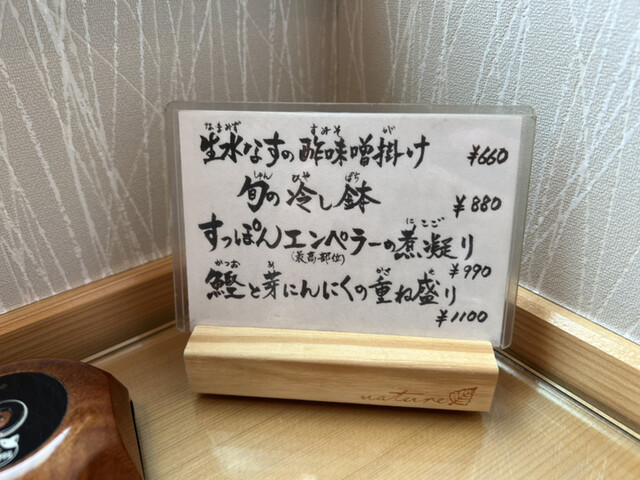 なまみず すみそ が
生水なすの酢味噌掛け ¥660
しゅん ひや ばち
旬の冷し鉢 ¥880
にこご
すっぽんエンペラーの煮凝り
(最高部位) ¥990
かつお め かさ も
鰹と芽にんにくの重ね盛り
¥1100
nature